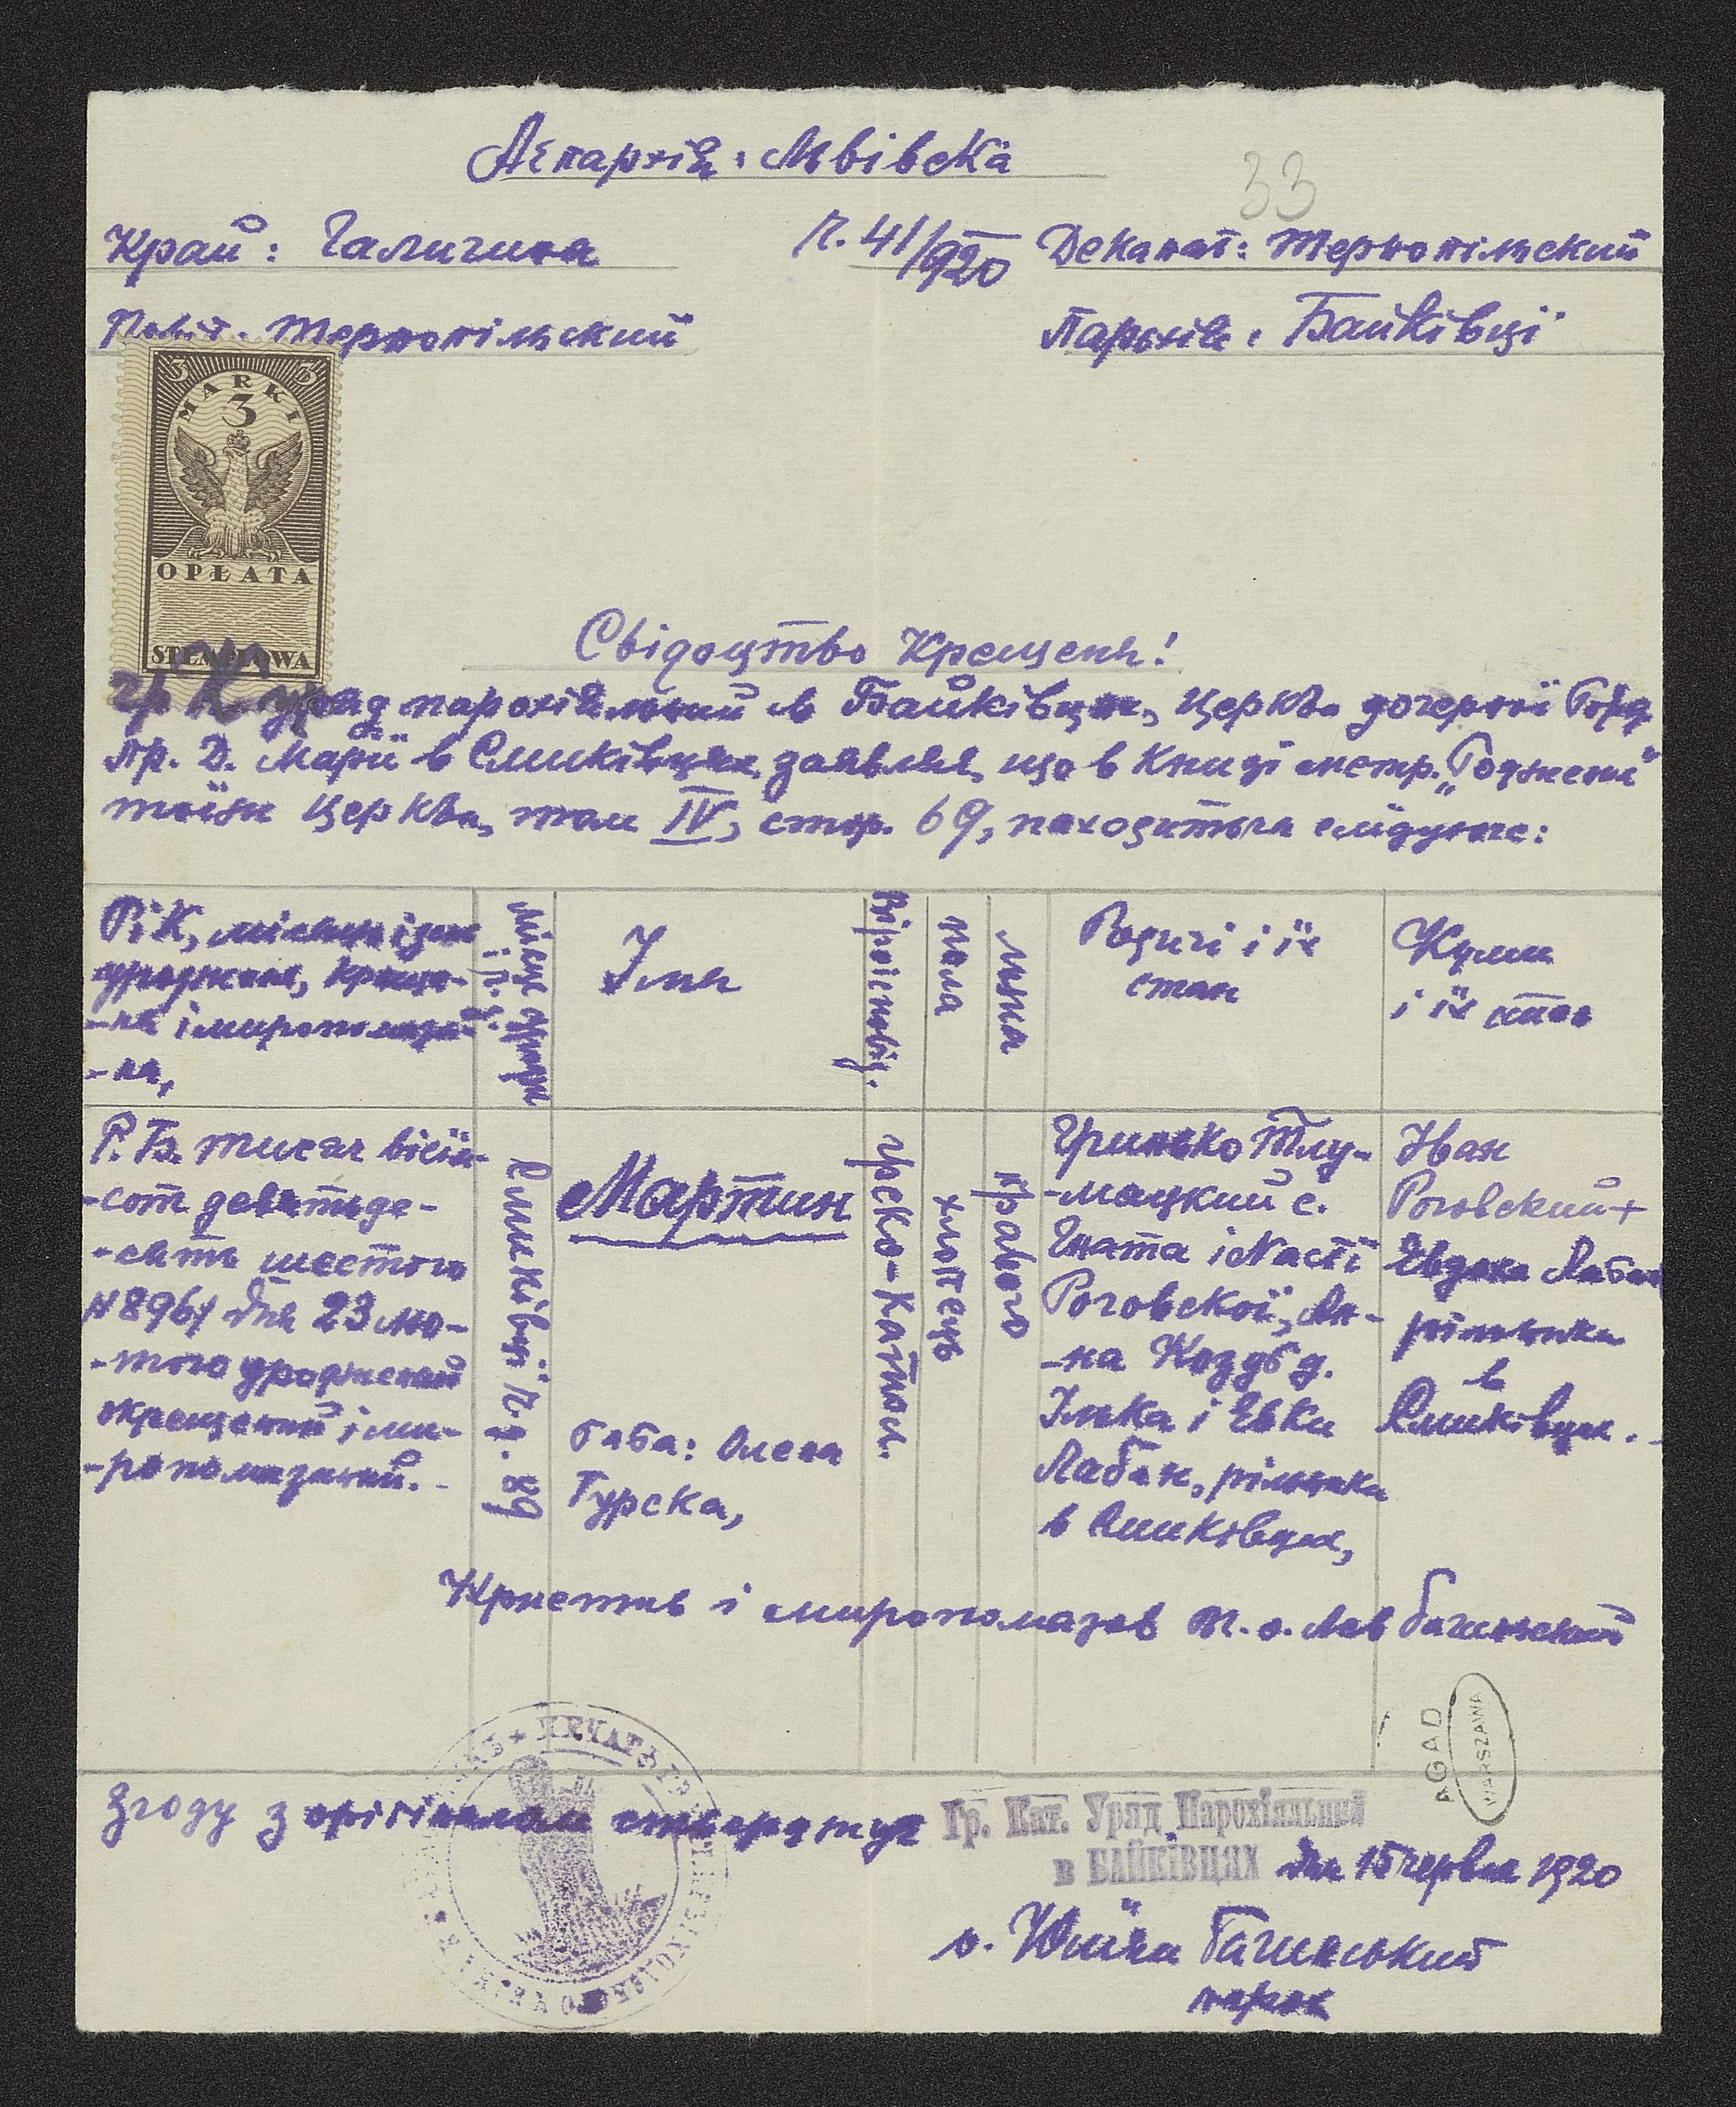 Аепархія: Львівска
33
Край: Галичина
Ч. 41/920
Деканат: Тернопільский
Повіт: Тернопільский
Парохія: Байківці
3 3
MARKI
3
OPŁATA
STEMPLOWA
Свідоцтво Крещеня!
гр К. уряд парохіяльний в Байківцях, Церкви дочерної Рожд
Пр. Д. Марії в Смиківцях заявляє, що в Книзі метр. „Родженя"
тоїж Церкви, том IV, стор. 69, находиться слідуюче:
Рік, місяць і день
уродженя, креще-
-ня і миропомаза-
-ня,
Місце уродж
і Ч. д.
Імя
Віроісповід.
пола
ложа
Родичі і їх
стан
Куми
і їх стан
Р. Б. тисяч вісім-
-сот девятьде-
-сять шестого
1896/ дня 23 лю-
-того уроджений
окрещений і ми-
-ропомазаний.
Смиківці Ч. д. 89
Мартин
баба: Олена
Турска,
греко-католи.
хлопець
правого
Гринько Тлу-
-мацкий с.
Гната і Насті
Роговскої, Ан-
-на Коздуб д.
Ілька і Евки
Лабан, рільники
в Смиківцях,
Иван
Роговский +
Евдоха Лабан
рільники
в
Смиківцях.
Кристив і миропомазов т. о. Лев Бачинський
AGAD
WARSZAWA
ПЕЧАТЬ
Згоду з орігіналом стверджує
Гр. Кат. Уряд Парохіяльний
в БАЙКІВЦЯХ дня 15 червня 1920
о. Юліян Бачинський
парох